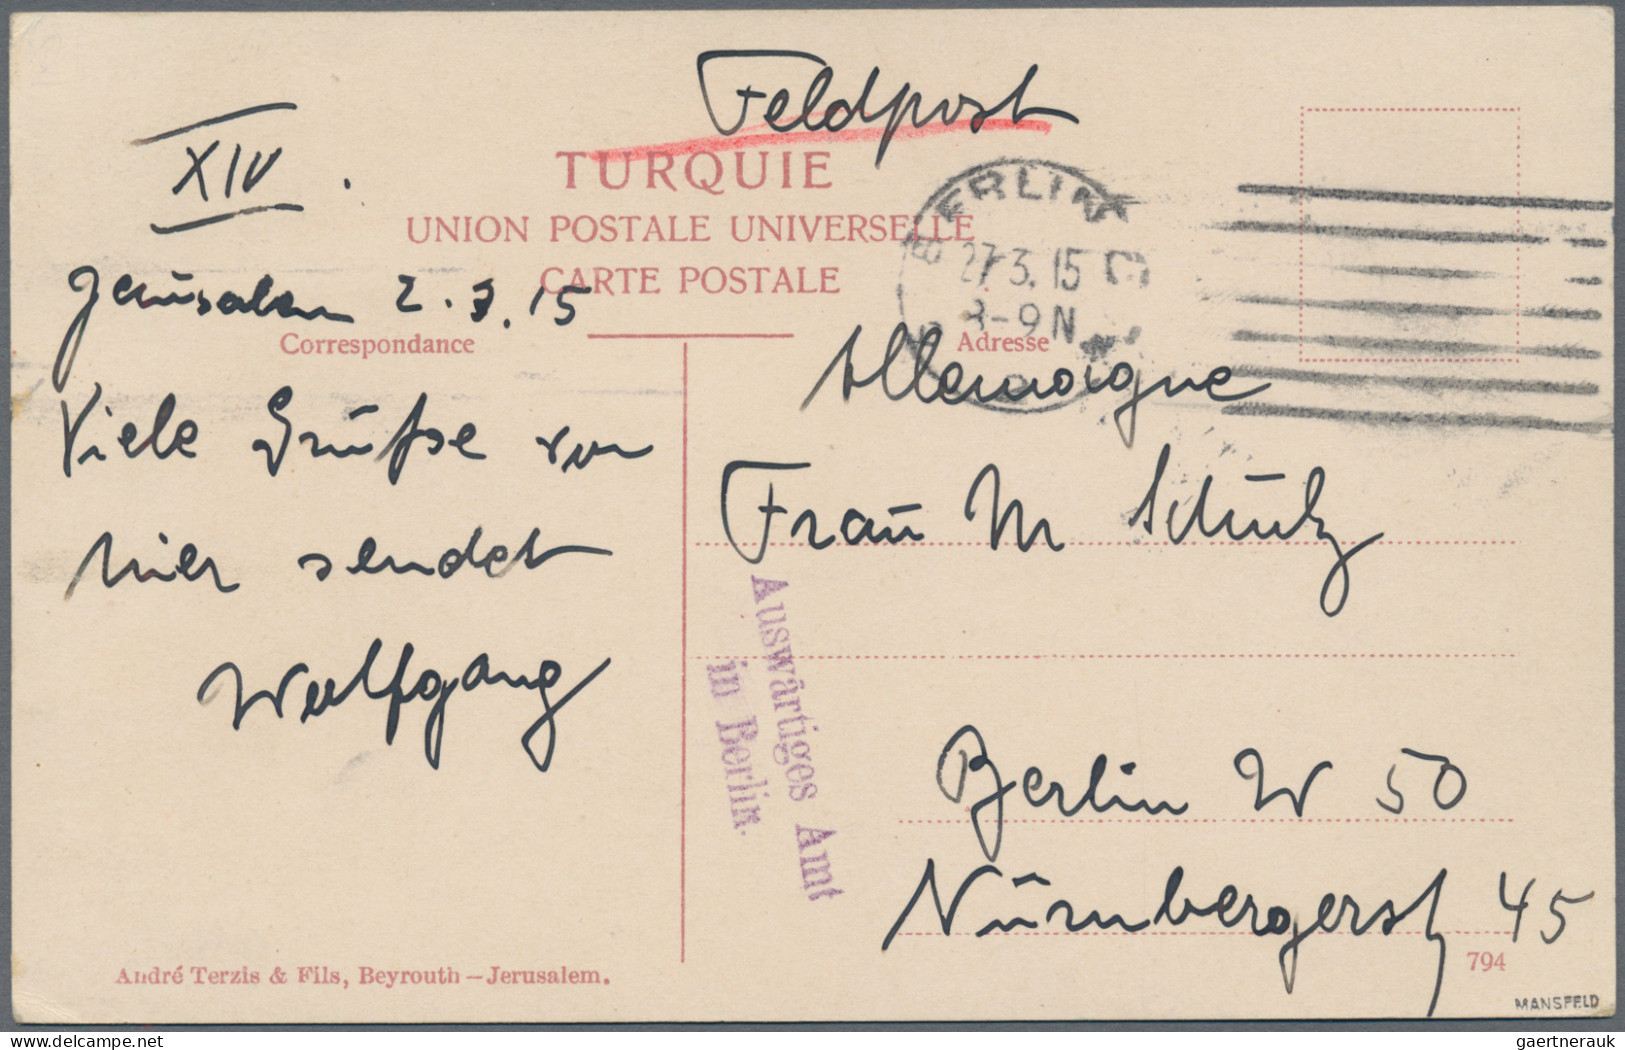 Feldpost
XIV.
TURQUIE
UNION POSTALE UNIVERSELLE
CARTE POSTALE
BERLIN
27.3.15
8-9N
Jerusalem 2.3.15
Correspondance
Adresse
Allemagne
Viele Grüße von
hier sendet
Wolfgang
Frau M Schulz
Auswärtiges Amt
in Berlin.
Berlin W 50
Nürnbergerstr 45
André Terzis & Fils, Beyrouth – Jerusalem.
794
MANSFELD
gaertnerauk